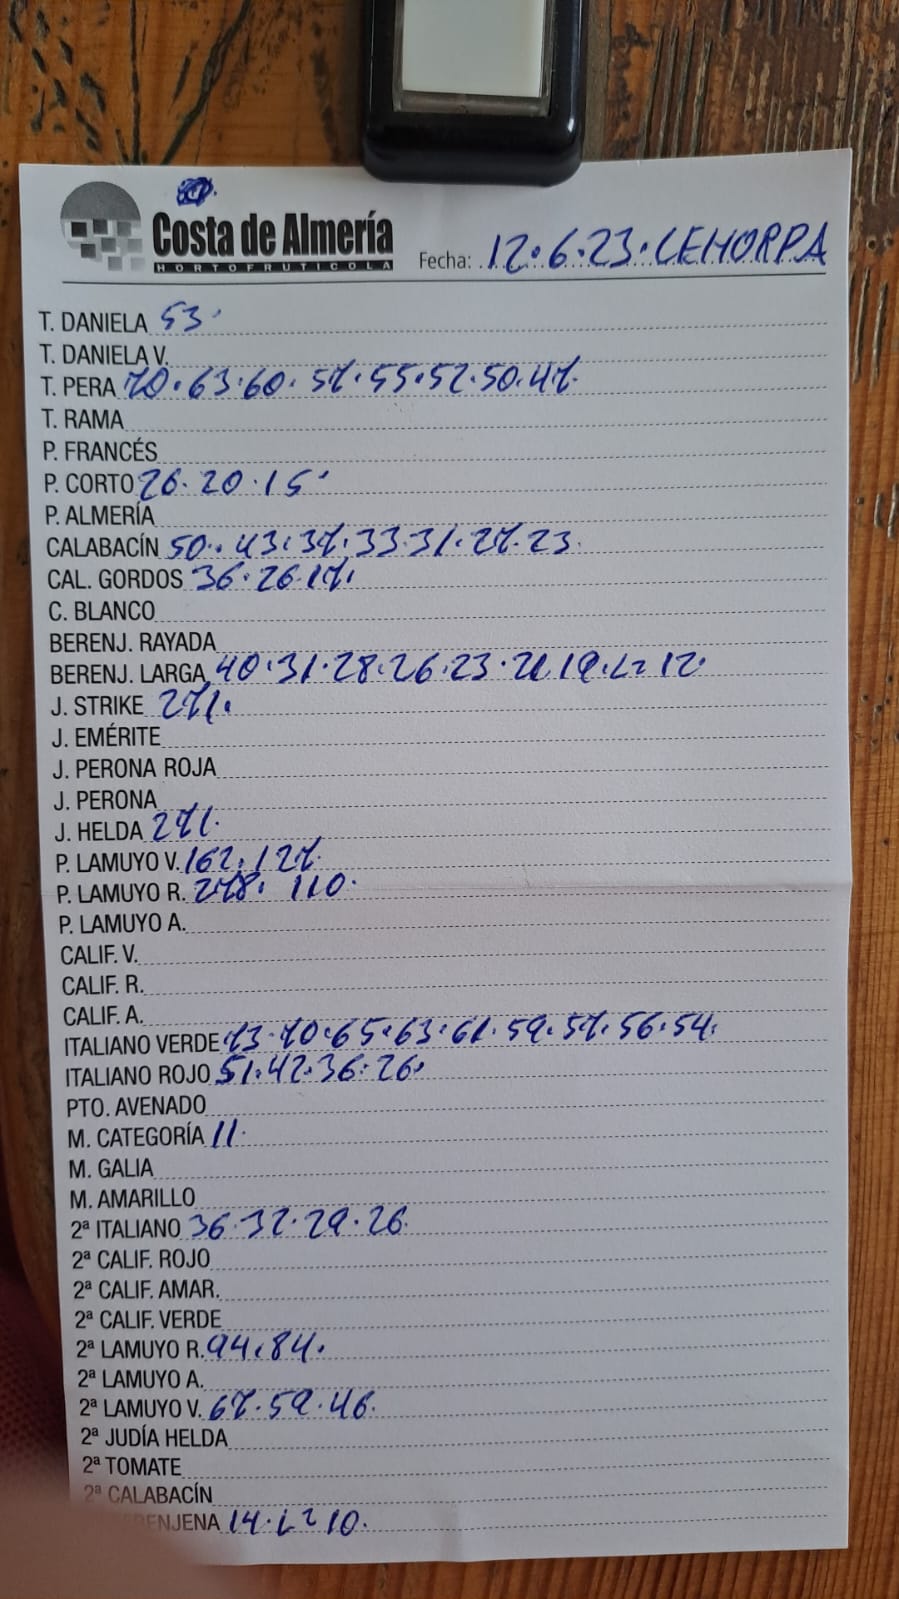 Costa de Almería
HORTOFRUTICOLA
Fecha: 12.6.23.CEHORPA
T. DANIELA 53
T. DANIELA V.
T. PERA 70.63.60.57.55.52.50.47.
T. RAMA
P. FRANCÉS
P. CORTO 26.20.15
P. ALMERÍA
CALABACÍN 50.43.37.33.31.27.23.
CAL. GORDOS 36.26.17.
C. BLANCO
BERENJ. RAYADA
BERENJ. LARGA 40.31.28.26.23.21.19.L=12.
J. STRIKE 271.
J. EMÉRITE
J. PERONA ROJA
J. PERONA
J. HELDA 271.
P. LAMUYO V. 162.127.
P. LAMUYO R. 278. 110.
P. LAMUYO A.
CALIF. V.
CALIF. R.
CALIF. A.
ITALIANO VERDE 73.70.65.63.61.59.57.56.54.
ITALIANO ROJO 51.42.36.26.
PTO. AVENADO
M. CATEGORÍA 11.
M. GALIA
M. AMARILLO
2ª ITALIANO 36.32.29.26.
2ª CALIF. ROJO
2ª CALIF. AMAR.
2ª CALIF. VERDE
2ª LAMUYO R. 94.84.
2ª LAMUYO A.
2ª LAMUYO V. 67.59.46.
2ª JUDÍA HELDA
2ª TOMATE
2ª CALABACÍN
ENJENA 14.L=10.